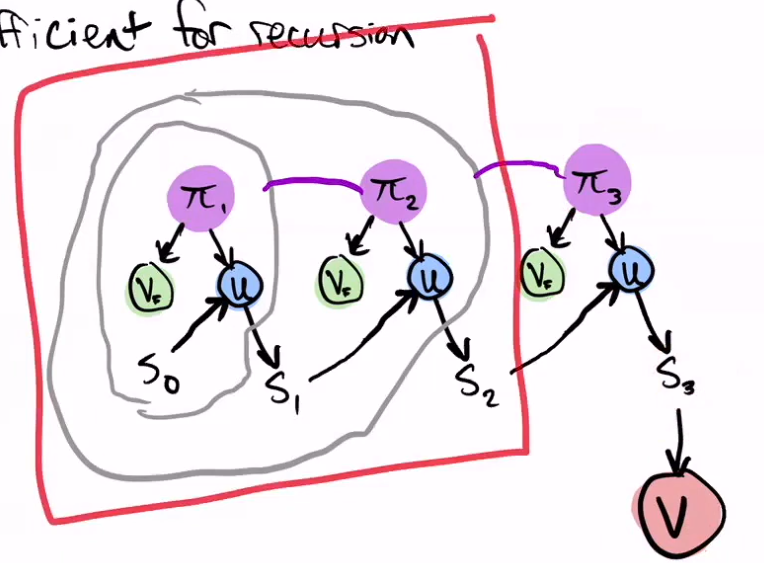 fficient for recursion
π₁ π₂ π₃
V_F u V_F u V_F u
S₀ S₁ S₂ S₃
V